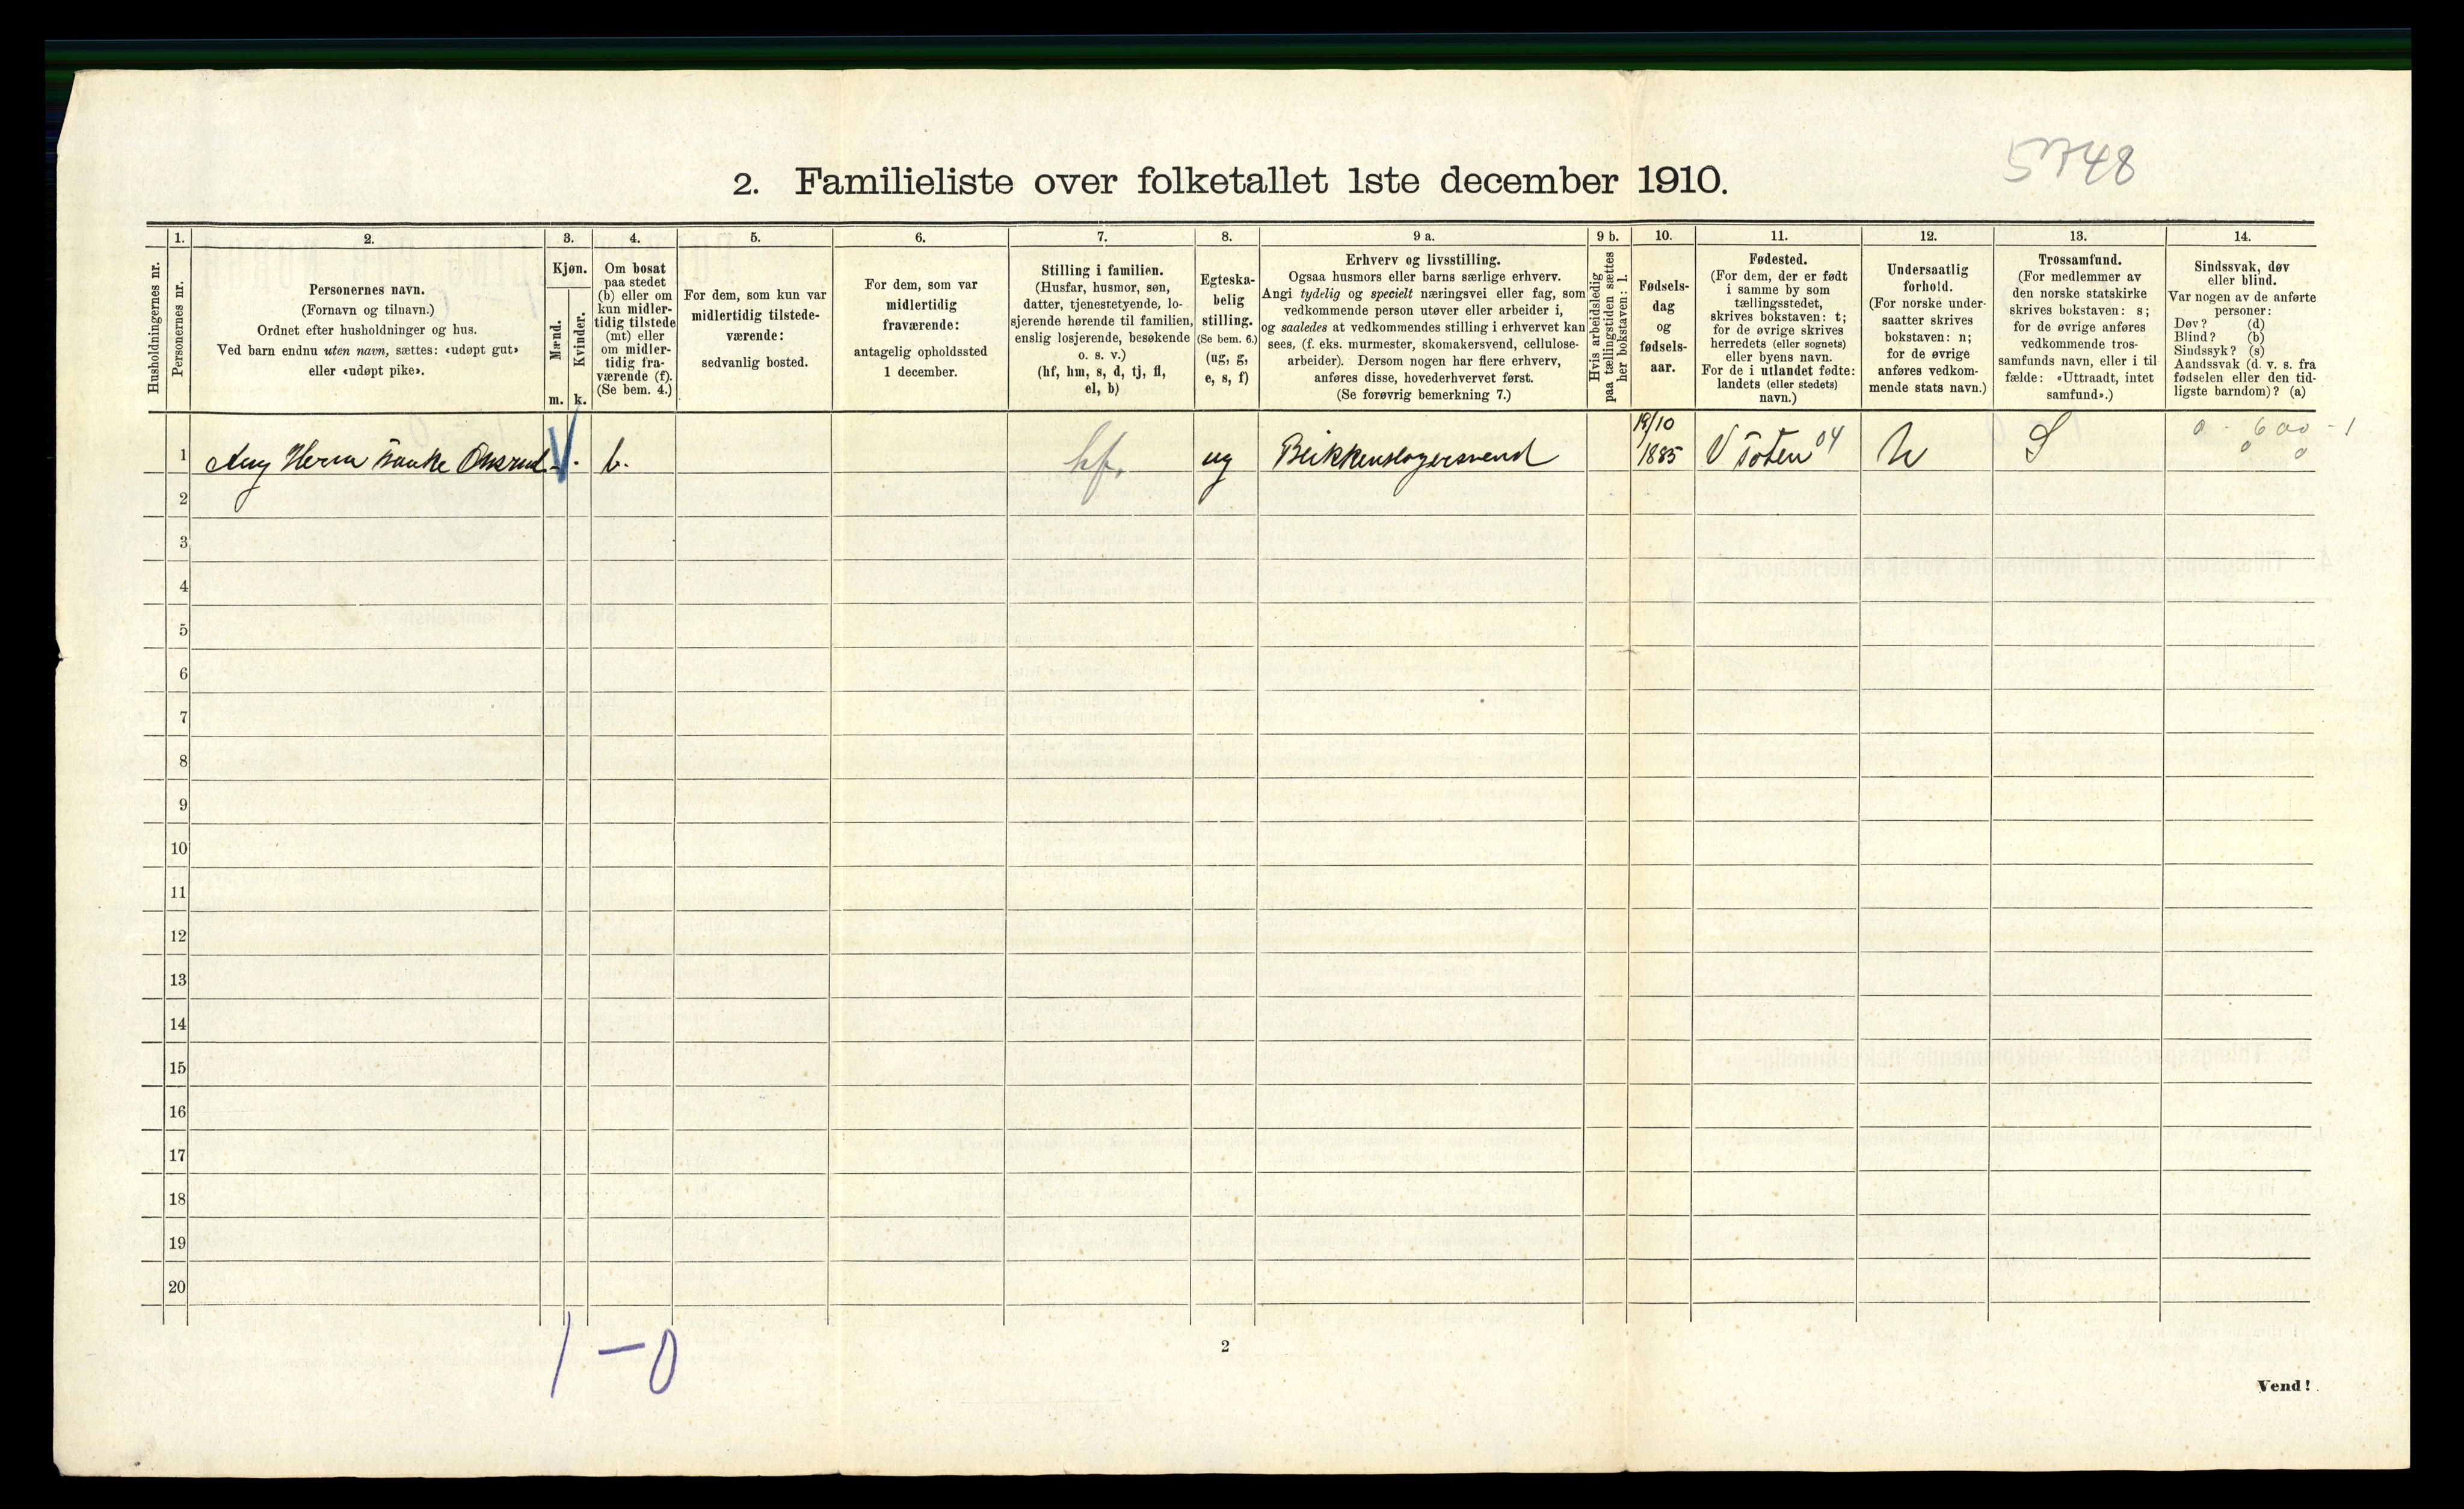 5748
2. Familieliste over folketallet 1ste december 1910.
Husholdningernes nr.
1.
Personernes nr.
2.
Personernes navn.
(Fornavn og tilnavn.)
Ordnet efter husholdninger og hus.
Ved barn endnu uten navn, sættes: «udøpt gut»
eller «udøpt pike».
3.
Kjøn.
Mænd.
Kvinder.
m. k.
4.
Om bosat
paa stedet
(b) eller om
kun midler-
tidig tilstede
(mt) eller
om midler-
tidig fra-
værende (f).
(Se bem. 4.)
5.
For dem, som kun var
midlertidig tilstede-
værende:
sedvanlig bosted.
6.
For dem, som var
midlertidig
fraværende:
antagelig opholdssted
1 december.
7.
Stilling i familien.
(Husfar, husmor, søn,
datter, tjenestetyende, lo-
sjerende hørende til familien,
enslig losjerende, besøkende
o. s. v.)
(hf, hm, s, d, tj, fl,
el, b)
8.
Egteska-
belig
stilling.
(Se bem. 6.)
(ug, g,
e, s, f)
9 a.
Erhverv og livsstilling.
Ogsaa husmors eller barns særlige erhverv.
Angi tydelig og specielt næringsvei eller fag, som
vedkommende person utøver eller arbeider i,
og saaledes at vedkommendes stilling i erhvervet kan
sees, (f. eks. murmester, skomakersvend, cellulose-
arbeider). Dersom nogen har flere erhverv,
anføres disse, hovederhvervet først.
(Se forøvrig bemerkning 7.)
9 b.
Hvis arbeidsledig
paa tællingstiden sættes
her bokstaven: l.
10.
Fødsels-
dag
og
fødsels-
aar.
11.
Fødested.
(For dem, der er født
i samme by som
tællingsstedet,
skrives bokstaven: t;
for de øvrige skrives
herredets (eller sognets)
eller byens navn.
For de i utlandet fødte:
landets (eller stedets)
navn.)
12.
Undersaatlig
forhold.
(For norske under-
saatter skrives
bokstaven: n;
for de øvrige
anføres vedkom-
mende stats navn.)
13.
Trossamfund.
(For medlemmer av
den norske statskirke
skrives bokstaven: s;
for de øvrige anføres
vedkommende tros-
samfunds navn, eller i til
fælde: «Uttraadt, intet
samfund».)
14.
Sindssvak, døv
eller blind.
Var nogen av de anførte
personer:
Døv? (d)
Blind? (b)
Sindssyk? (s)
Aandssvak (d. v. s. fra
fødselen eller den tid-
ligste barndom)? (a)
1 Aug Herm b. hf. ug Blikkenslagersvend 19/10 1885 V Toten 04 N S
2
3
4
5
6
7
8
9
10
11
12
13
14
15
16
17
18
19
20
1 – 0
2
Vend!